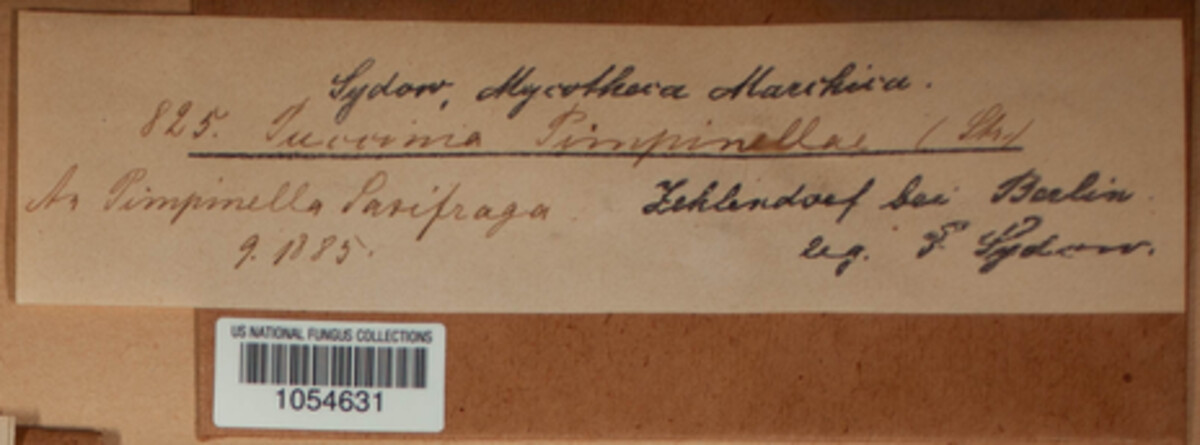 Sydow, Mycotheca Marchica.
825. Puccinia Pimpinellae (Str.)
An Pimpinella Saxifraga.
9. 1885.
Zehlendorf bei Berlin.
leg. P. Sydow.
US NATIONAL FUNGUS COLLECTIONS
1054631